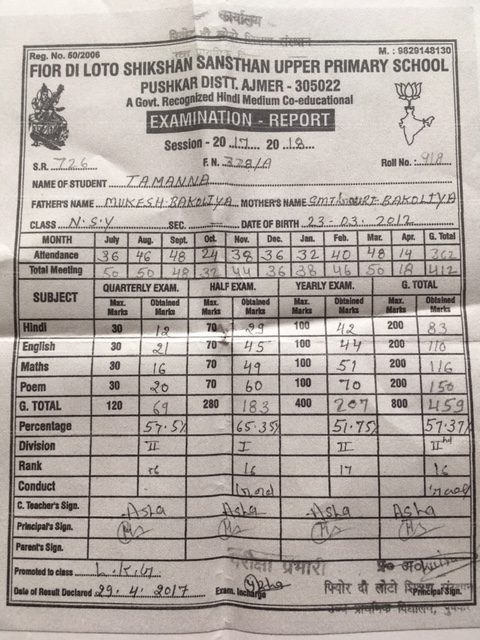 कार्यालय
फियोर दी लोटो शिक्षण संस्थान
Reg. No. 50/2006 M. : 9829148130
FIOR DI LOTO SHIKSHAN SANSTHAN UPPER PRIMARY SCHOOL
PUSHKAR DISTT. AJMER - 305022
A Govt. Recognized Hindi Medium Co-educational
EXAMINATION - REPORT
Session - 2017 2018
S.R. 726 F.N. 338/A Roll No. 918
NAME OF STUDENT TAMANNA
FATHER'S NAME MUKESH BAKOLIYA MOTHER'S NAME SMT. BAKOLIYA
CLASS N.S.Y SEC. DATE OF BIRTH 23-03-2012
MONTH July Aug. Sept. Oct. Nov. Dec. Jan. Feb. Mar. Apr. G. Total
Attendance 36 46 48 24 38 36 32 40 48 14 362
Total Meeting 50 50 48 32 44 36 38 46 50 18 412
SUBJECT QUARTERLY EXAM. HALF EXAM. YEARLY EXAM. G. TOTAL
Max. Marks Obtained Marks Max. Marks Obtained Marks Max. Marks Obtained Marks Max. Marks Obtained Marks
Hindi 30 12 70 29 100 42 200 83
English 30 21 70 45 100 44 200 110
Maths 30 16 70 49 100 51 200 116
Poem 30 20 70 60 100 70 200 150
G. TOTAL 120 69 280 183 400 207 800 459
Percentage 57.5% 65.35% 51.75% 57.37%
Division II I II II
Rank 16 16 17 16
Conduct
C. Teacher's Sign. Asha Asha Asha Asha
Principal's Sign.
Parent's Sign.
परीक्षा प्रभारी
Promoted to class L.K.G
Date of Result Declared 29.4.2017 Exam. Incharge Principal Sign.
फियोर दी लोटो शिक्षण संस्थान
उच्च प्राथमिक विद्यालय, पुष्कर